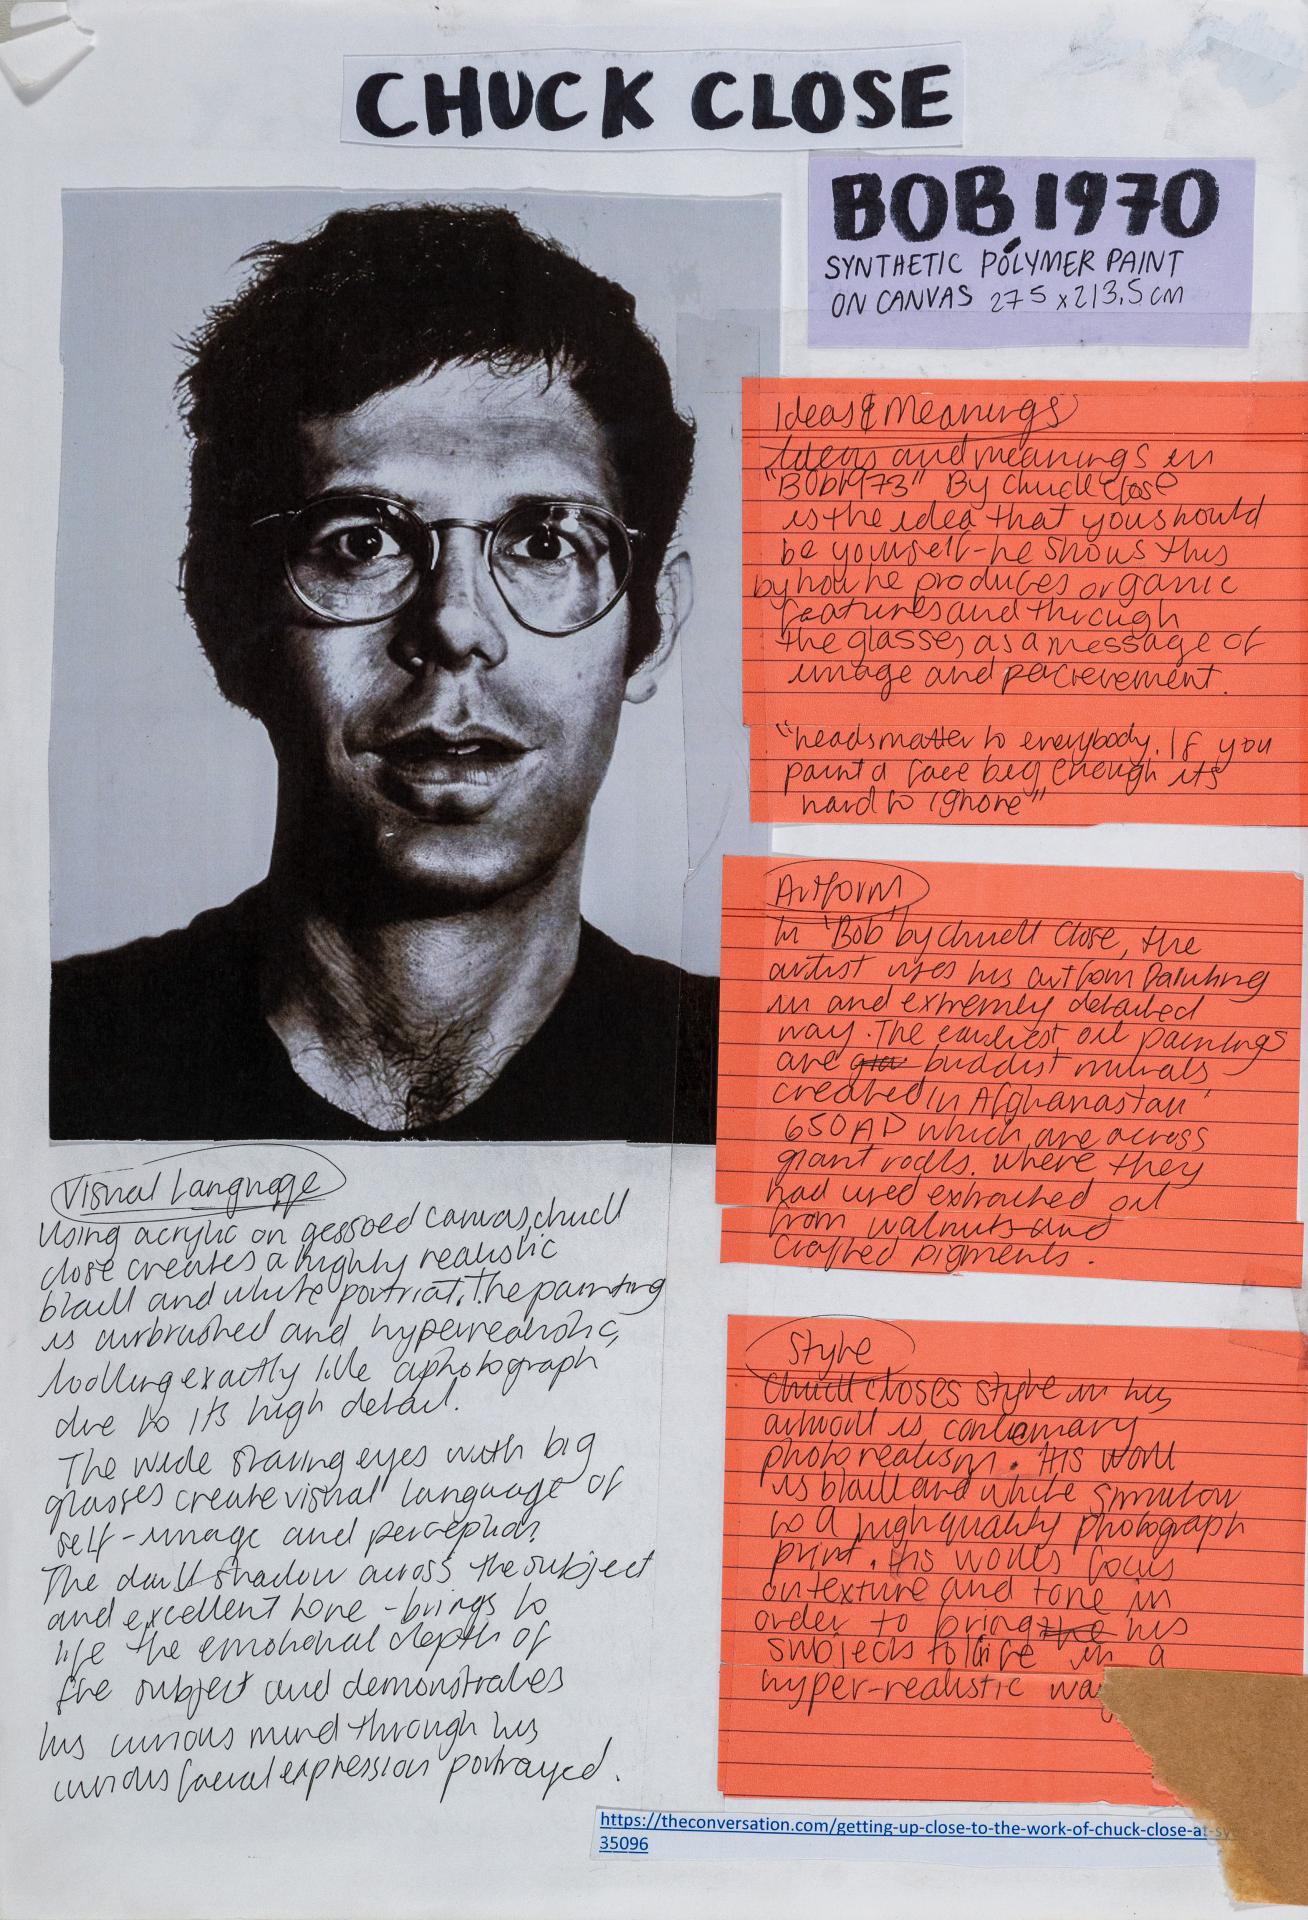 CHUCK CLOSE
BOB 1970
SYNTHETIC POLYMER PAINT
ON CANVAS 275 x 213.5 CM
Ideas & Meanings
Ideas and meanings in
"Bob 1973" By Chuck Close
is the idea that you should
be yourself - he shows this
by how he produces organic
features and through
the glasses as a message of
image and
"heads matter to everybody. If you
paint a face big enough its
hard to ignore"
Artform
In 'Bob' by chuck Close, the
artist uses his artform Painting
in and extremely detailed
way. The earliest oil paintings
are buddist murals
created in Afghanastan
650 AD which are across
giant rocks. where they
had used extracted oil
from walnuts and
crafted pigments.
Style
Chuck closes style in his
artwork is
photorealism. His work
is black and white similar
to a high quality photograph
print. His works focus
on texture and tone in
order to bring the his
subjects to life in a
hyper-realistic way
Visual Language
Using acrylic on gessoed canvas, chuck
close creates a highly realistic
black and white portriat. The painting
is airbrushed and hyperrealistic,
looking exactly like a photograph
due to its high detail.
The wide staring eyes with big
glasses create visual language of
self-image and perception.
The dark shadow across the subject
and excellent tone - brings to
life the emotional depth of
the subject and demonstrates
his curious mind through his
curious facial expression portrayed.
https://theconversation.com/getting-up-close-to-the-work-of-chuck-close-at-sy
35096